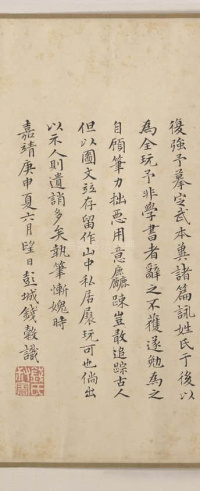 復強予摹定武本與諸篇詠姓氏于後以
為全玩予非學書者辭之不獲遂勉為之
自顧筆力拙惡用意麤踈豈敢追踪古人
但以圖文竝存留作山中私居展玩可也倘出
以示人則遺誚多矣執筆慚媿時
嘉靖庚申夏六月望日彭城錢穀識